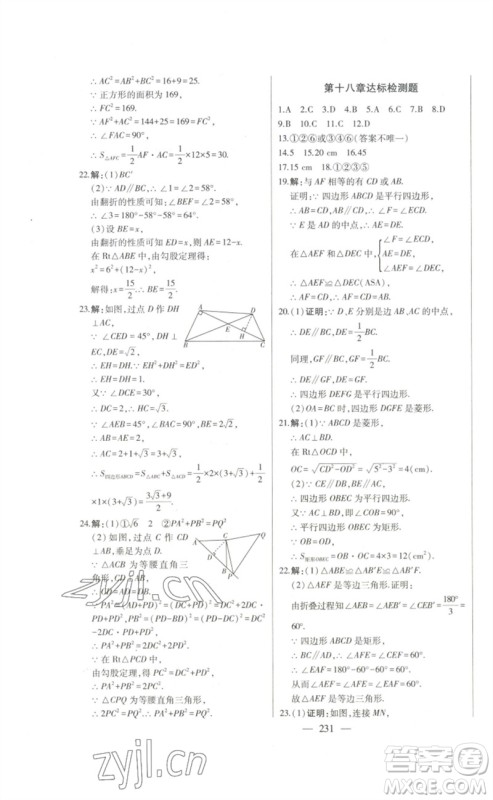 ∴ AC²=AB²+BC²=16+9=25.
∵ 正方形的面积为 169,
∴ FC²=169.
∵ AF²+AC²=144+25=169=FC²,
∴ ∠FAC=90°,
∴ S△AFC=1/2 AF·AC=1/2×12×5=30.
22.解:(1)BC'
(2)∵ AD∥BC,∴ ∠1=∠2=58°.
由翻折的性质可知,∠BEF=∠2=58°,
∴ ∠3=180°-58°-58°=64°.
(3)设 BE=x,
由翻折的性质可知 ED=x,则 AE=12-x,
在 Rt△ABE 中,由勾股定理得:
x²=6²+(12-x)²,
解得:x=15/2,∴ BE=15/2.
23.解:如图,过点 D 作 DH
⊥AC,
∵ ∠CED=45°,DH⊥
EC,DE=√2,
∴ EH=DH.∵ EH²+DH²=ED²,
∴ EH²=1,∴ EH=DH=1.
又∵ ∠DCE=30°,∠DHC=90°,
∴ DC=2,∴ HC=√3.
∵ ∠AEB=45°,∠BAC=90°,BE=2√2,
∴ AB=AE=2,
∴ AC=2+1+√3=3+√3,
∴ S四边形ABCD=S△ABC+S△ACD=1/2×2×(3+√3)+1/2
×1×(3+√3)=(3√3+9)/2.
24.解:(1)①√6 2 ②PA²+PB²=PQ²
(2)如图,过点 C 作 CD
⊥AB,垂足为 D.
∵ △ACB 为等腰直角三
角形,CD⊥AB,
∴ CD=AD=DB.
∵ PA²=(AD+PD)²=(DC+PD)²=DC²+2DC·
PD+PD²,PB²=(PD-BD)²=(PD-DC)²=DC²
-2DC·PD+PD²,
∴ PA²+PB²=2DC²+2PD².
∵ 在 Rt△PCD 中,
由勾股定理,得 PC²=DC²+PD²,
∴ PA²+PB²=2PC².
∵ △CPQ 为等腰直角三角形,
∴ 2PC²=PQ²,∴ PA²+PB²=PQ².
第十八章达标检测题
1.A 2.C 3.D 4.C 5.D 6.B 7.B 8.D
9.B 10.A 11.C 12.D
13.①②⑥或③④⑥(答案不唯一)
14.5 15.20 cm 16.45
17.15 cm 18.①②③⑤
19.解:与 AF 相等的有 CD 或 AB.
证明:∵ 四边形 ABCD 是平行四边形,
∴ AB=CD,AB∥CD,∴ ∠F=∠ECD.
∵ E 是 AD 的中点,∴ AE=DE.
在△AEF 和△DEC 中,{∠F=∠ECD,
∠AEF=∠DEC,
AE=DE,
∴ △AEF≌△DEC(ASA),
∴ AF=CD,∴ AF=CD=AB.
20.(1)证明:∵ D,E 分别是边 AB,AC 的中点,
∴ DE∥BC,DE=1/2 BC.
同理,GF∥BC,GF=1/2 BC.
∴ DE∥GF,DE=GF.
∴ 四边形 DEFG 是平行四边形.
(2)OA=BC 时,四边形 DGFE 是菱形.
21.解:(1)∵ 四边形 ABCD 是菱形,
∴ AC⊥BD.
∴ 在直角△OCD 中,
OC=√(CD²-OD²)=√(5²-3²)=4(cm).
(2)∵ CE∥DB,BE∥AC,
∴ 四边形 OBEC 为平行四边形.
又∵ AC⊥BD,即∠COB=90°,
∴ 平行四边形 OBEC 为矩形.
∵ OB=OD,
∴ S矩形OBEC=OB·OC=4×3=12(cm²).
22.解:(1)△AEB≌△AEB'≌△AB'F.
(2)△AEF 是等边三角形.证明:
由折叠过程知∠AEB=∠AEB'=∠CEB'=180°/3=
60°.
∵ 四边形 ABCD 是矩形,
∴ BC∥AD.∴ ∠AFE=∠CEB'=60°,
∴ ∠EAF=180°-60°-60°=60°,
从而∠AEF=∠AFE=∠EAF=60°.
故△AEF 是等边三角形.
23.(1)证明:如图,连接 MN,
231
zyjl.cn
zyjl.cn
答案圈
MXQE.COM